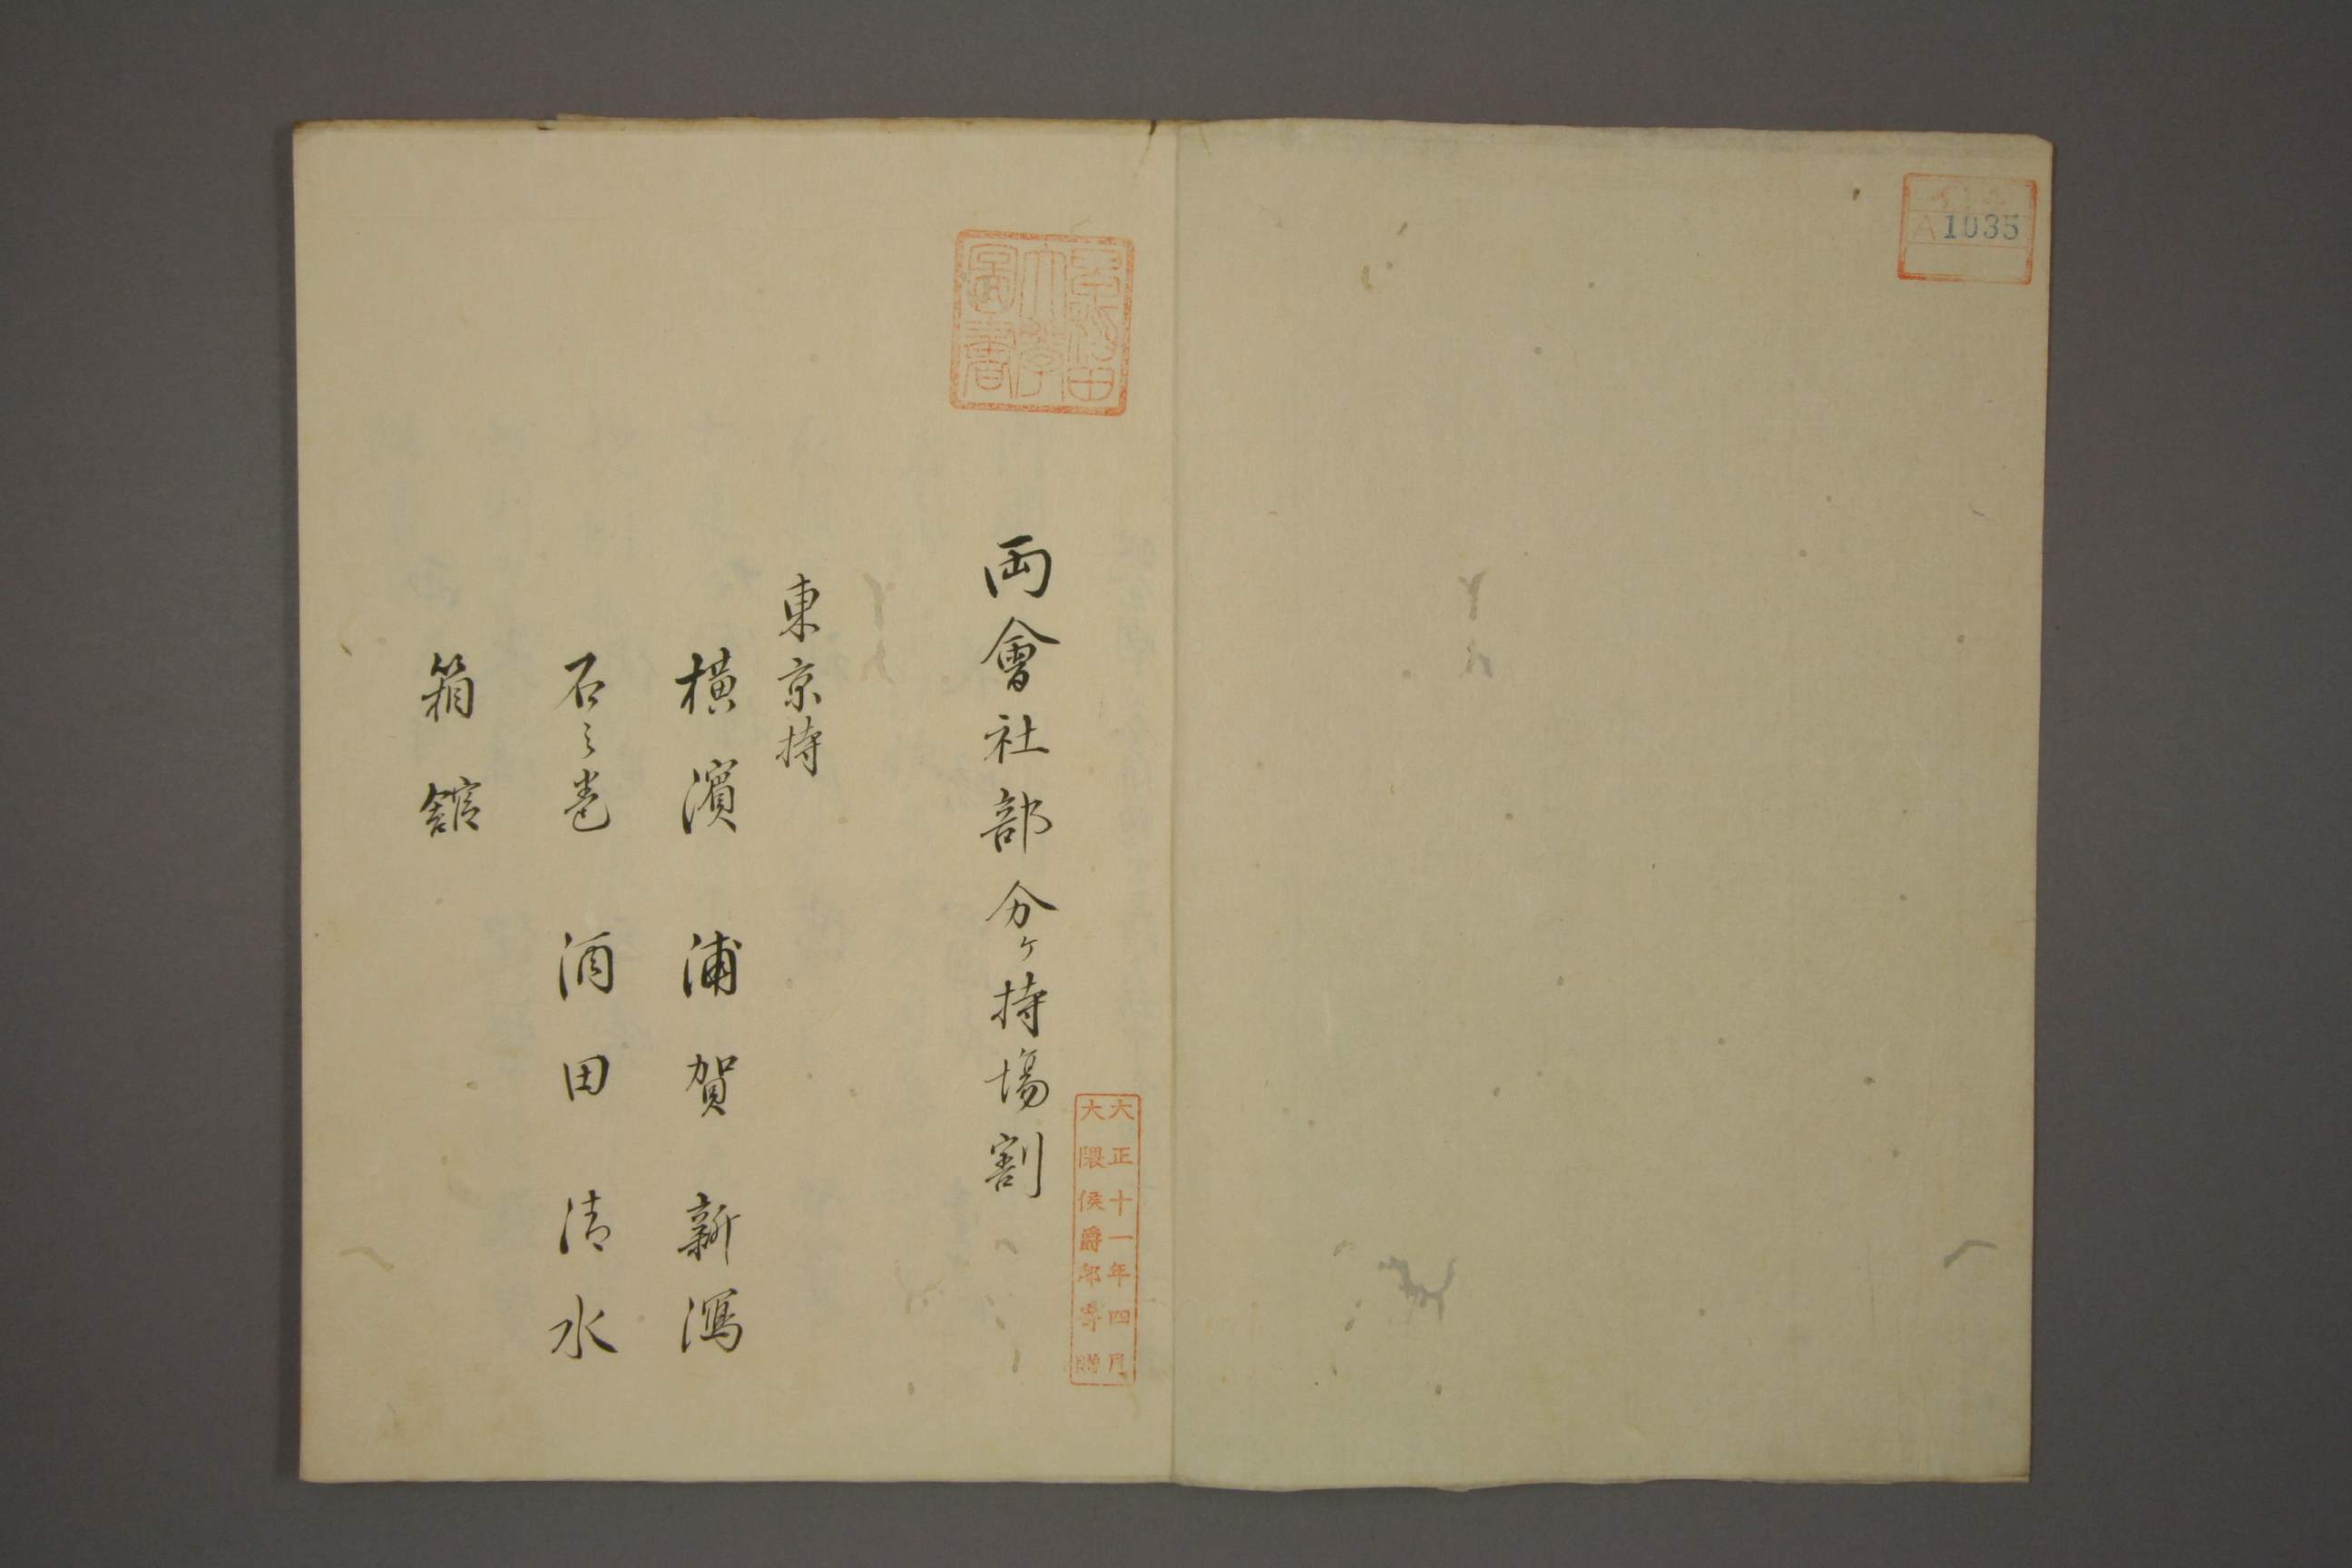 A1035
早稲田
大學
圖書
大正十一年四月
大隈侯爵邸寄贈
両會社部分ヶ持場割
東京持
横濱 浦賀 新潟
石之巻 酒田 清水
箱舘